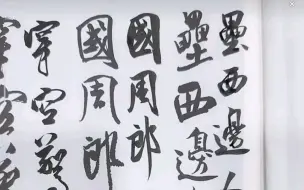 壘西邊人
壘西邊
國周郎
國周郎
穿空驚
穿空